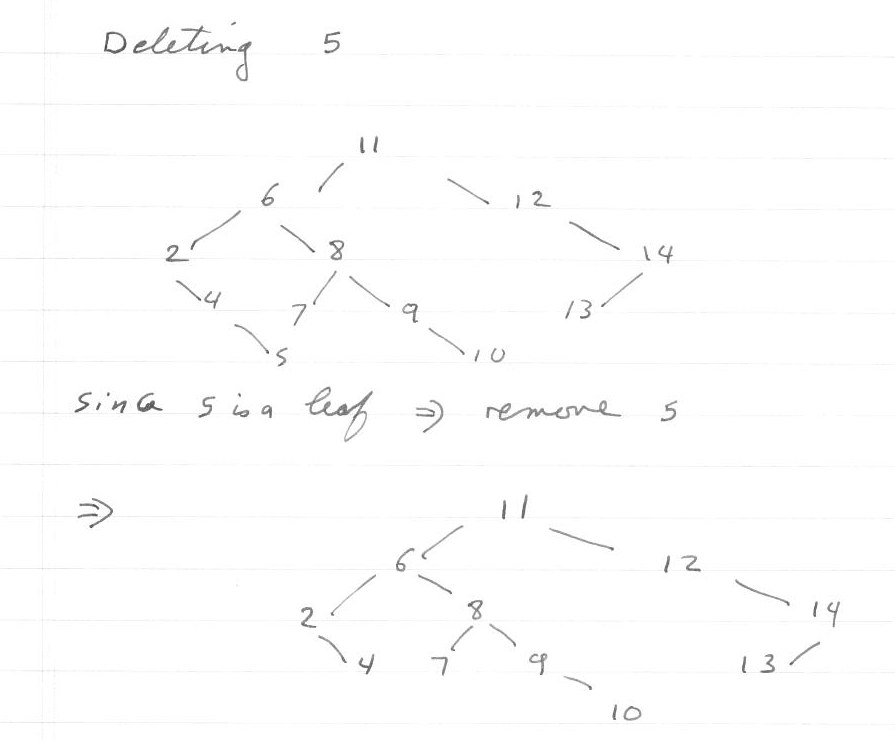 Deleting 5
11
6 12
2 8 14
4 7 9 13
5 10
Since 5 is a leaf ⇒ remove 5
⇒ 11
6 12
2 8 14
4 7 9 13
10